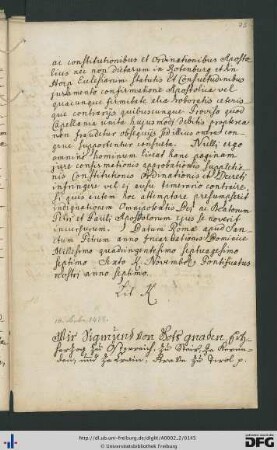 75
ac constitutionibus et Ordinationibus Aposto-
licis nec non dictarum in Rotenburg et
Ecclesiarum statutis Et Consuetudinibus
Juramento confirmatione Apostolica vel
quacunque firmitate alia roboratis ceteris
que contrarijs quibuscunque Proviso quod
Capellania unita hujusmodi debitis propterea
non fraudetur obsequijs sed illius onera con-
grue supportentur consueta. Nulli ergo
omnino hominum liceat hanc paginam
nre confirmationis approbationis suppletionis
Constitutionis Ordinationis et Decreti
infringere vel ei ausu temerario contraire,
Si quis autem hoc attemptare presumpserit
indignationem Omnipotentis Dei ac Beatorum
Petri et Pauli Apostolorum ejus se noverit
incursurum. Datum Romæ apud Sanc-
tum Petrum anno Incarnationis Dominice
Millesimo quadringentesimo septuagesimo
septimo Novembr. Pontificatus
nostri anno septimo.
Lit. K
Wir Sigmund von Gots gnaden, Ertz-
herzog zu Österreich, zu Steir, zu Kern-
den, und zu Crain, Grave zu Tirol p.
http://dl.ub.uni-freiburg.de/diglit/40002_2/0145
© Universitätsbibliothek Freiburg
Gefördert durch
DFG